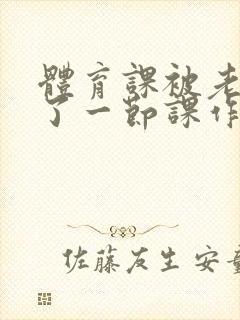 體育課被老
了一節課作
佐藤友生 安童